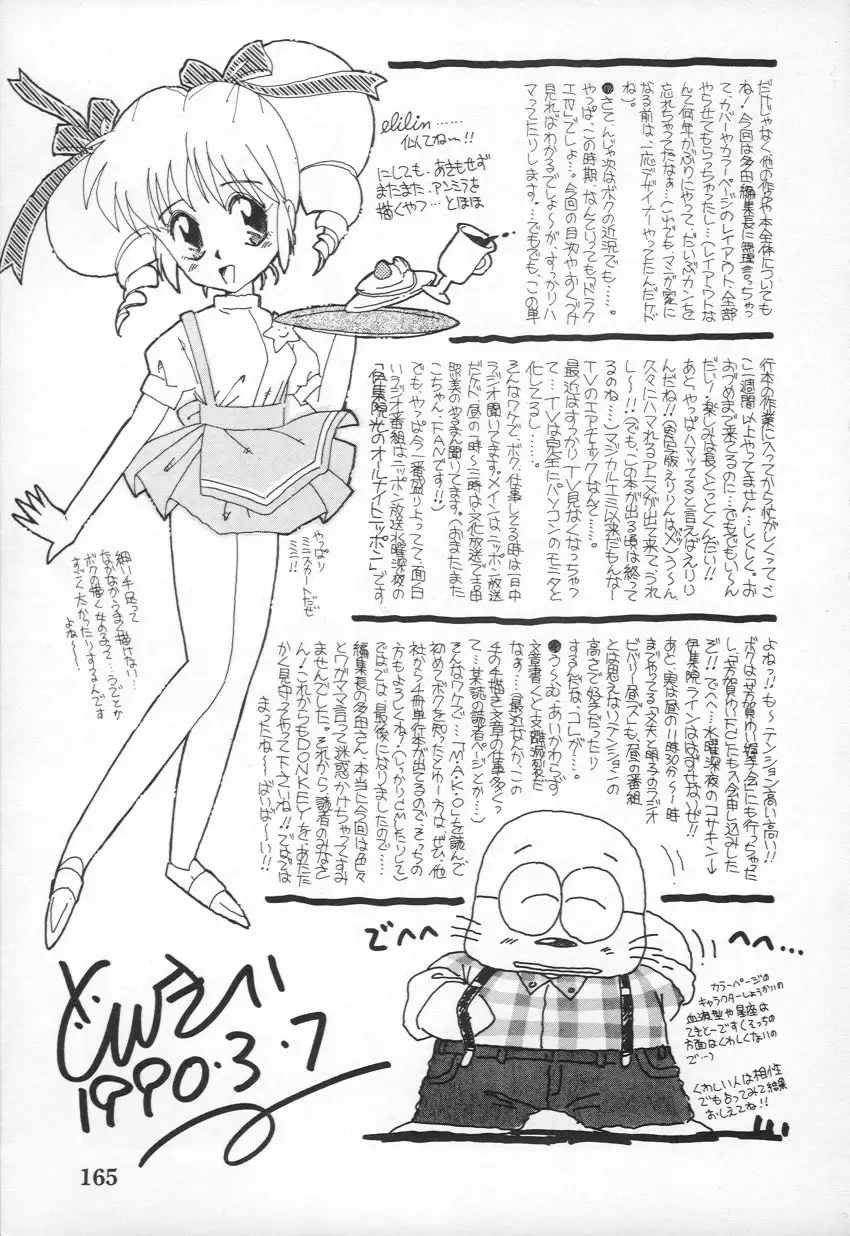 だけじゃなく他の作品や本全体についても
ね！今回は多田編集長に無理言っちゃっ
て、カバーやカラーページのレイアウト、全部
やらせてもらっちゃったし…（レイアウトな
んて何年かぶりにやって、だいぶカンを
忘れちゃってたなぁ…（じゃでもマンガ家に
なる前は一応デザイナーやってたんだけど
ね）。
●さてんじゃ次はボクの近況でも……。
やっぱ、この時期なんといっても「ドラク
エⅣ」でしょ…。今回の目次やおくづけ
見ればわかるでしょーが、すっかりハ
マってたりします。…でもでも、この単
行本の作業に入ってから忙がしくってこ
こ一週間以上やってません…しくしく。お
おづめまで来てるのに…でもでもい〜ん
だい！楽しみは長くとっとくんだい!!
あと、やっぱハマッてると言えばえりり
んだね!!（実写版えりりんは×）う〜ん
久々にハマれるアニメが出て来てうれ
し〜!!（でも、この本が出る頃は終って
るのね…）マジカルエミ以来だもんなー
TVのエアチェックなんて……。
最近はすっかりTV見なくなっちゃっ
て…TVは完全にパソコンのモニタと
化してるし……。
そんなワケで、ボク、仕事してる時は一日中
ラジオ聞いてます。メインはニッポン放送
だけど、昼の1時〜三時は文化放送で吉田
照美のやる気まん聞いてます。（おまたまた
こちゃん、FANです!!）
でも、やっぱ今一番盛り上ってて面白
いラジオ番組はニッポン放送水曜深夜の
「伊集院光のオールナイトニッポン」です
よねっ!!も〜テンション高い高い!!
ボクは「芳賀ゆい握手会」にも行っちゃった
し「芳賀ゆいFC」にも入会申し込みした
ぞ!!でへへ…水曜深夜のコサキン→
伊集院ラインははずせないぜ!!
あと、実は昼の11時30分〜1時
までやってる「文夫と明るのラジオ
ビバリー昼ズ」も、昼の番組
とは思えないテンションの
高さで好きだったり
するんだな、コレが…。
●う〜む、あいかわらず
文章書くと支離滅裂だ
なぁ…（最近なんか、この
手の手描き文章の仕事多くっ
て…某誌の読者ページとか…）
そんなワケで…「MAKO」を読んで
初めてボクを知ったとゆー方は、ぜひ、他
社から4冊単行本が出てるので、そっちの
方もよろしくね！（しっかりCMしたりして）
ではでは、最後になりましたので……
編集長の多田さん、本当に今回は色々
とワガママ言って迷惑かけちゃってすみ
ませんでした。それから読者のみなさ
ん！これからもDONKEYを、あたた
かく見守ってやって下さいね!!ではでは
まったね〜ばいばーい!!
elilin……
似てねー!!
にしても、あきもせず
またまた、アンミラを
描くやつ…とほほ
やっぱり
ミニスカートだも
ミニ!!
細い手足って
なかなかうまく描けない…
ボクの描く女のコって…うでとか
すごく太かったりするんです
よね〜。
でへへ
へへ…
カラーページの
キャラクターしょうかいの
血液型や星座は
てきとーです（そっちの
方面はくわしくないの
で…）
くわしい人は相性
でも占ってみて結果
おしえてね!!
1990・3・7
165